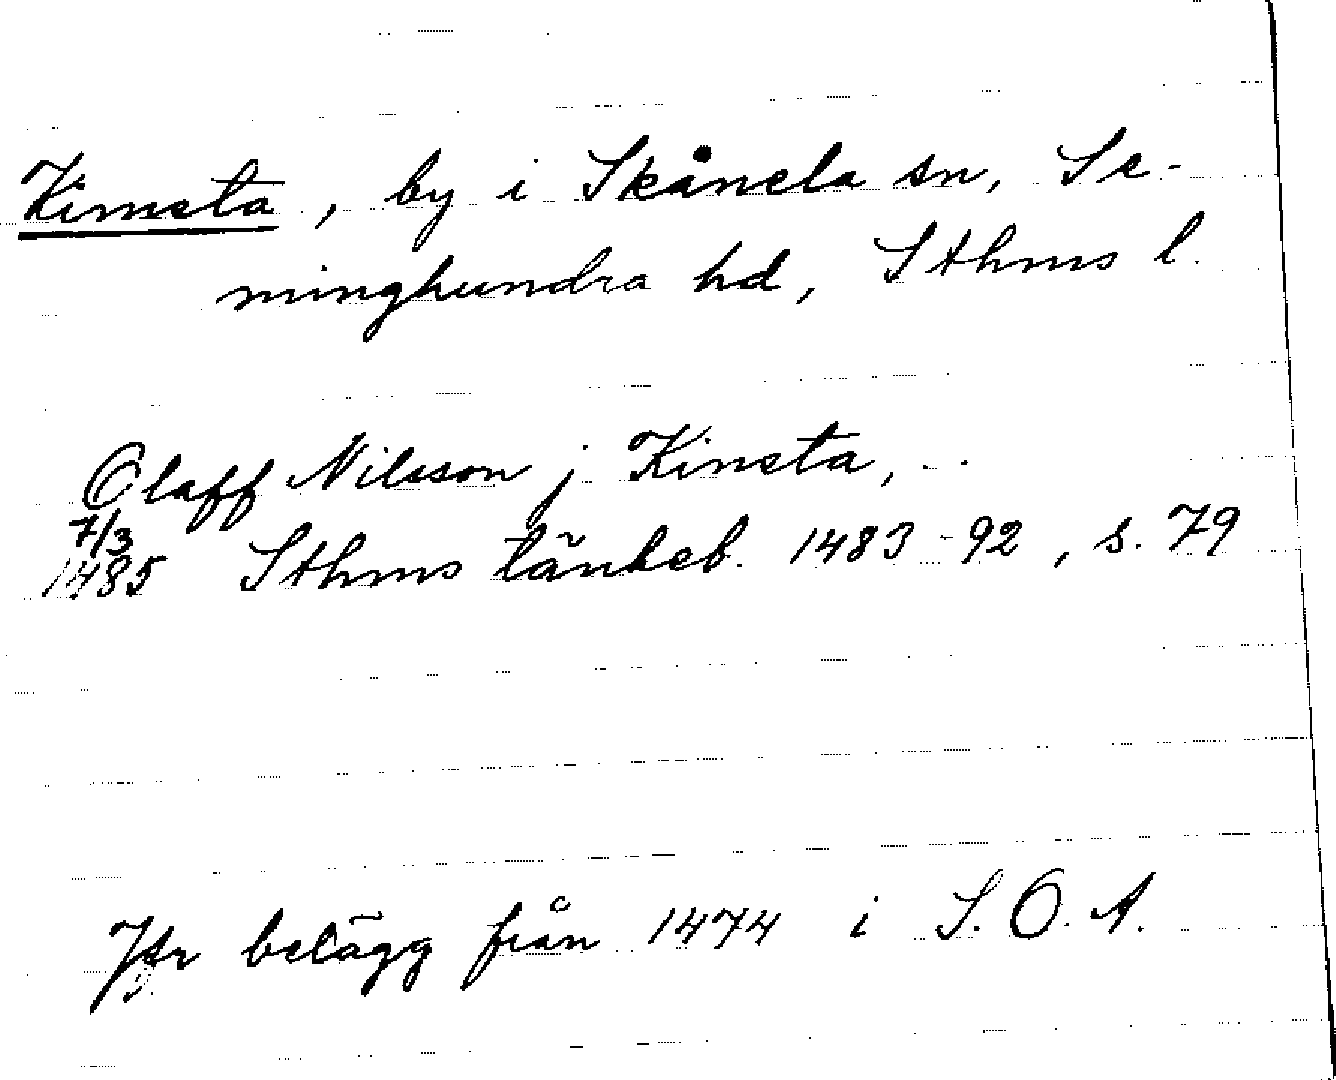 Kimsta, by i Skånela sn, Se-
minghundra hd, Sthms l.
Olaff Nilsson j Kinsta, ..
7/3
1485 Sthms tänkeb. 1483-92, s. 79
Jfr belägg från 1474 i S.O.A.